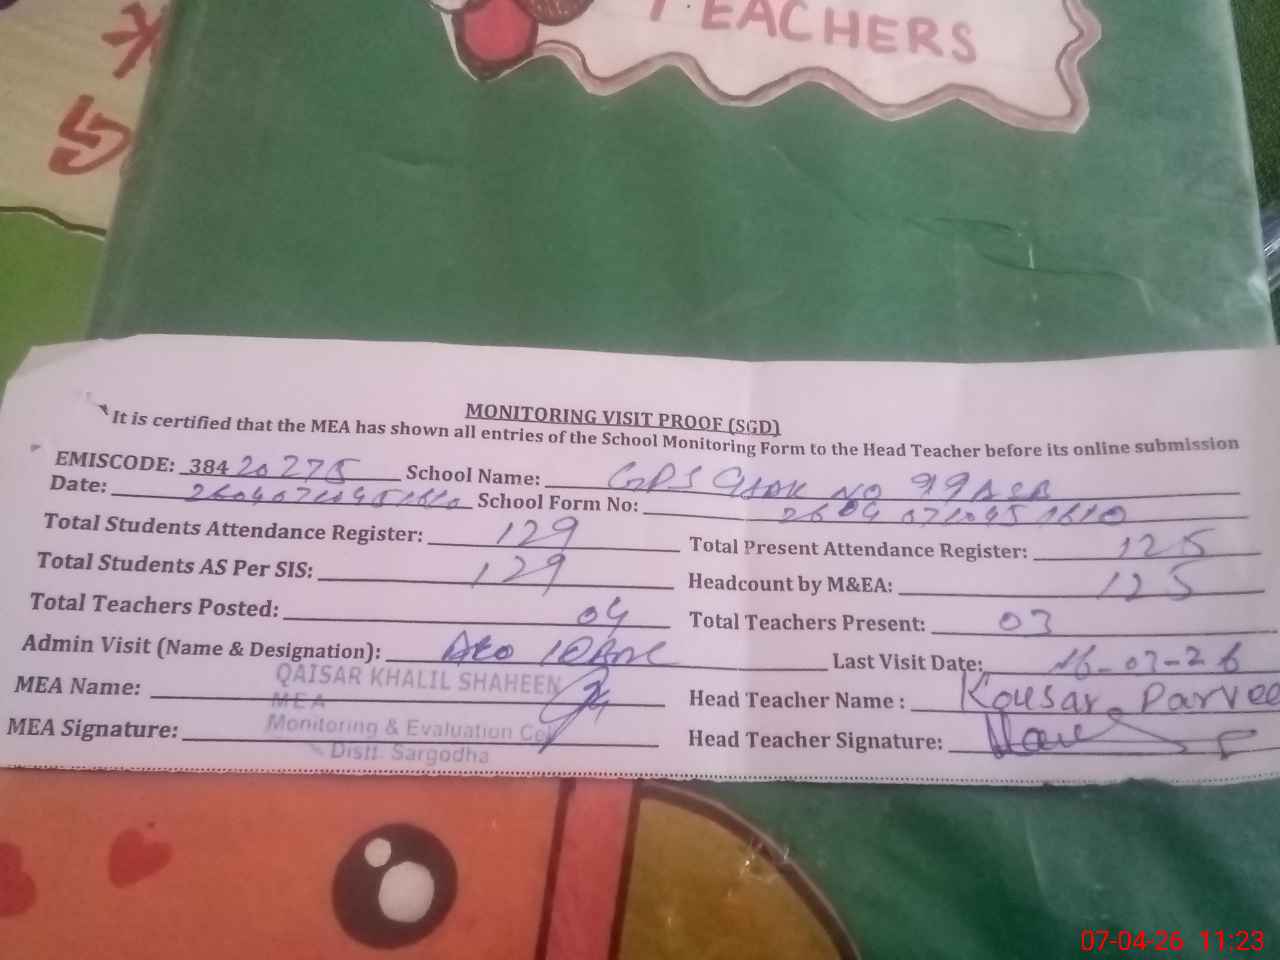 TEACHERS
MONITORING VISIT PROOF (SGD)
It is certified that the MEA has shown all entries of the School Monitoring Form to the Head Teacher before its online submission
EMISCODE: 38420275 School Name: GPS Chak No 99 ASB
Date: School Form No: 26040710451610
Total Students Attendance Register: 129 Total Present Attendance Register: 125
Total Students AS Per SIS: 129 Headcount by M&EA: 125
Total Teachers Posted: 04 Total Teachers Present: 03
Admin Visit (Name & Designation): Last Visit Date: 16-03-26
QAISAR KHALIL SHAHEEN
MEA Name: Head Teacher Name : Kousar Parvee
MEA
Monitoring & Evaluation Cell
MEA Signature: Head Teacher Signature:
Distt. Sargodha
07-04-26 11:23